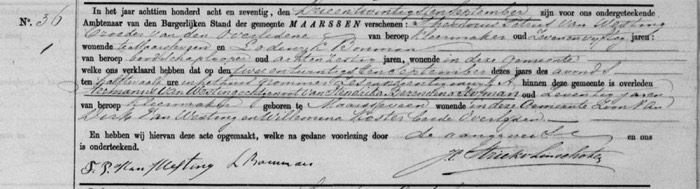 N.º 36
In het jaar achttien honderd acht en zeventig, den drieentwintigsten September zijn voor ons ondergeteekende
Ambtenaar van den Burgerlijken Stand der gemeente MAARSSEN verschenen: Theodorus Petrus Van Westing
Broeder van den Overledene van beroep Kleermaker oud zevenenvijftig jaren:
wonende te en Lodewyk Bouman
van beroep oud achtenzestig jaren, wonende in deze Gemeente
welke ons verklaard hebben dat op den tweeentwintigsten September dezes jaars des avonds
ten half twaalf ure in het huis nummer in deze gemeente is overleden
Hermanus Van Westing echtgenoot van Hendrika Berendina oud zeventig jaren
van beroep Kleermaker geboren te Maarsseveen wonende in deze Gemeente Zoon Van
Dirk Van Westing en Willemena Koster beide Overleden
En hebben wij hiervan deze acte opgemaakt, welke na gedane voorlezing door de aangevers en ons
is onderteekend.
T. P. Van Westing L Bouman